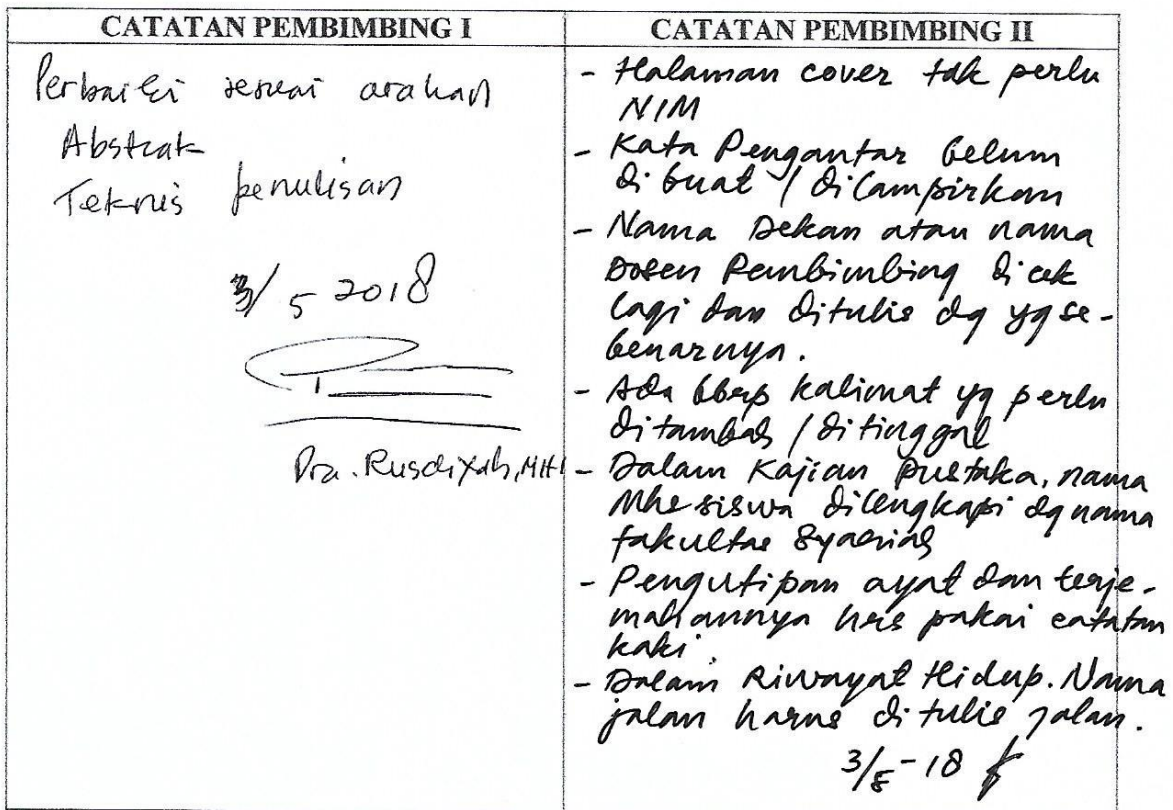 CATATAN PEMBIMBING I
Perbaiki sesuai arahan
Abstrak
Teknis penulisan
3/5 2018
Dra. Rusdiyah, MHI
CATATAN PEMBIMBING II
- Halaman cover tdk perlu
NIM
- Kata Pengantar belum
dibuat / dilampirkan
- Nama Dekan atau nama
Dosen Pembimbing dicek
lagi dan ditulis dg yg se-
benarnya.
- Ada bberp kalimat yg perlu
ditambah / ditinggal
- Dalam Kajian Pustaka, nama
Mhesiswa dilengkapi dg nama
fakultas Syariah
- Pengutipan ayat dan terje-
mahannya hrs pakai catatan
kaki.
- Dalam Riwayat Hidup. Nama
jalan harus ditulis jalan.
3/5-18